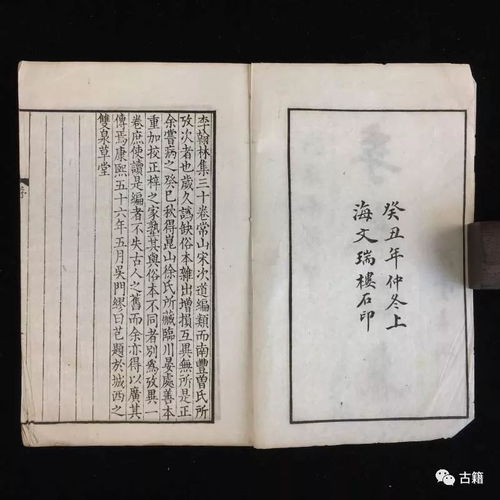 癸丑年仲冬上
海文瑞樓石印
李翰林集三十卷常山宋次道編類而南豐曾氏所
攷次者也歲久譌缺俗本雜出增損互異無所是正
余嘗病之癸巳秋得崑山徐氏所藏臨川晏處善本
重加挍正梓之家塾其與俗本不同者別爲攷異一
卷庶使讀是編者不失古人之舊而余亦得以廣其
傳焉康熙五十六年五月吳門繆曰芑題於城西之
雙泉草堂
序
古籍